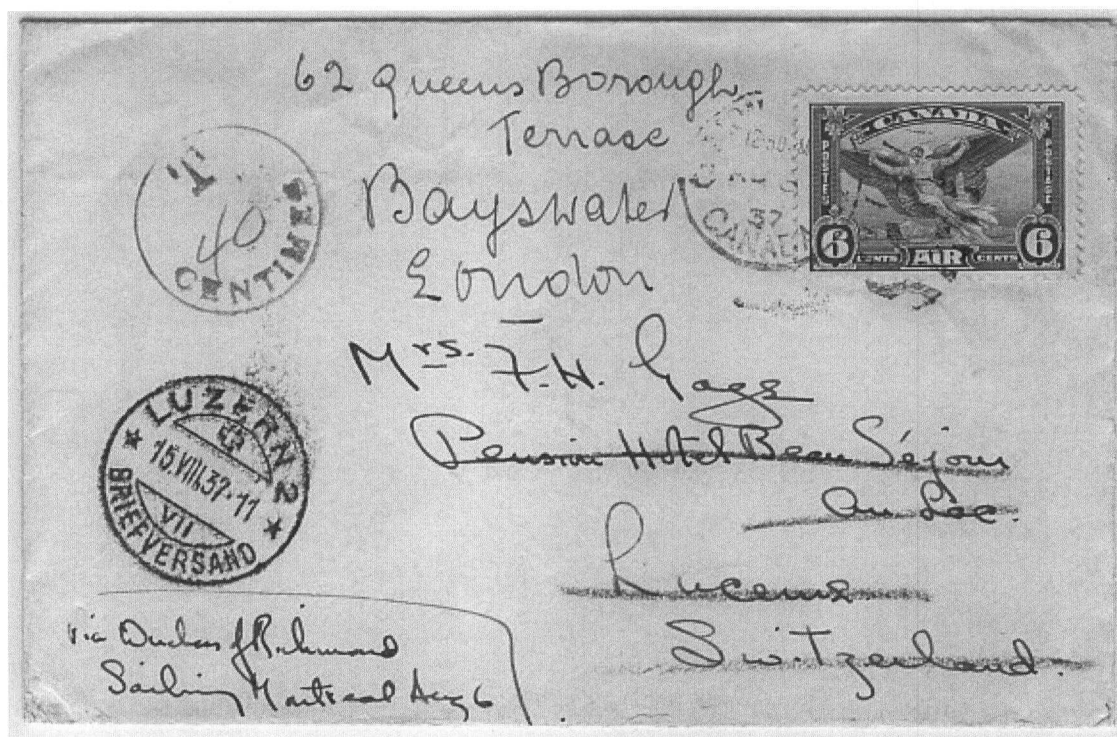 62 Queens Borough
Terrase
Bayswater
London
T.
40
CENTIMES
12
37
CANADA
CANADA
POSTES
POSTAGE
6 CENTS AIR CENTS 6
Mrs. F. H. Gage
Pension Hotel Beau Séjour
au Lac.
Lucerne
Switzerland.
LUZERN 2
15.VIII.37-11
VII
BRIEFVERSAND
via Duchess of Richmond
Sailing Montreal Aug 6